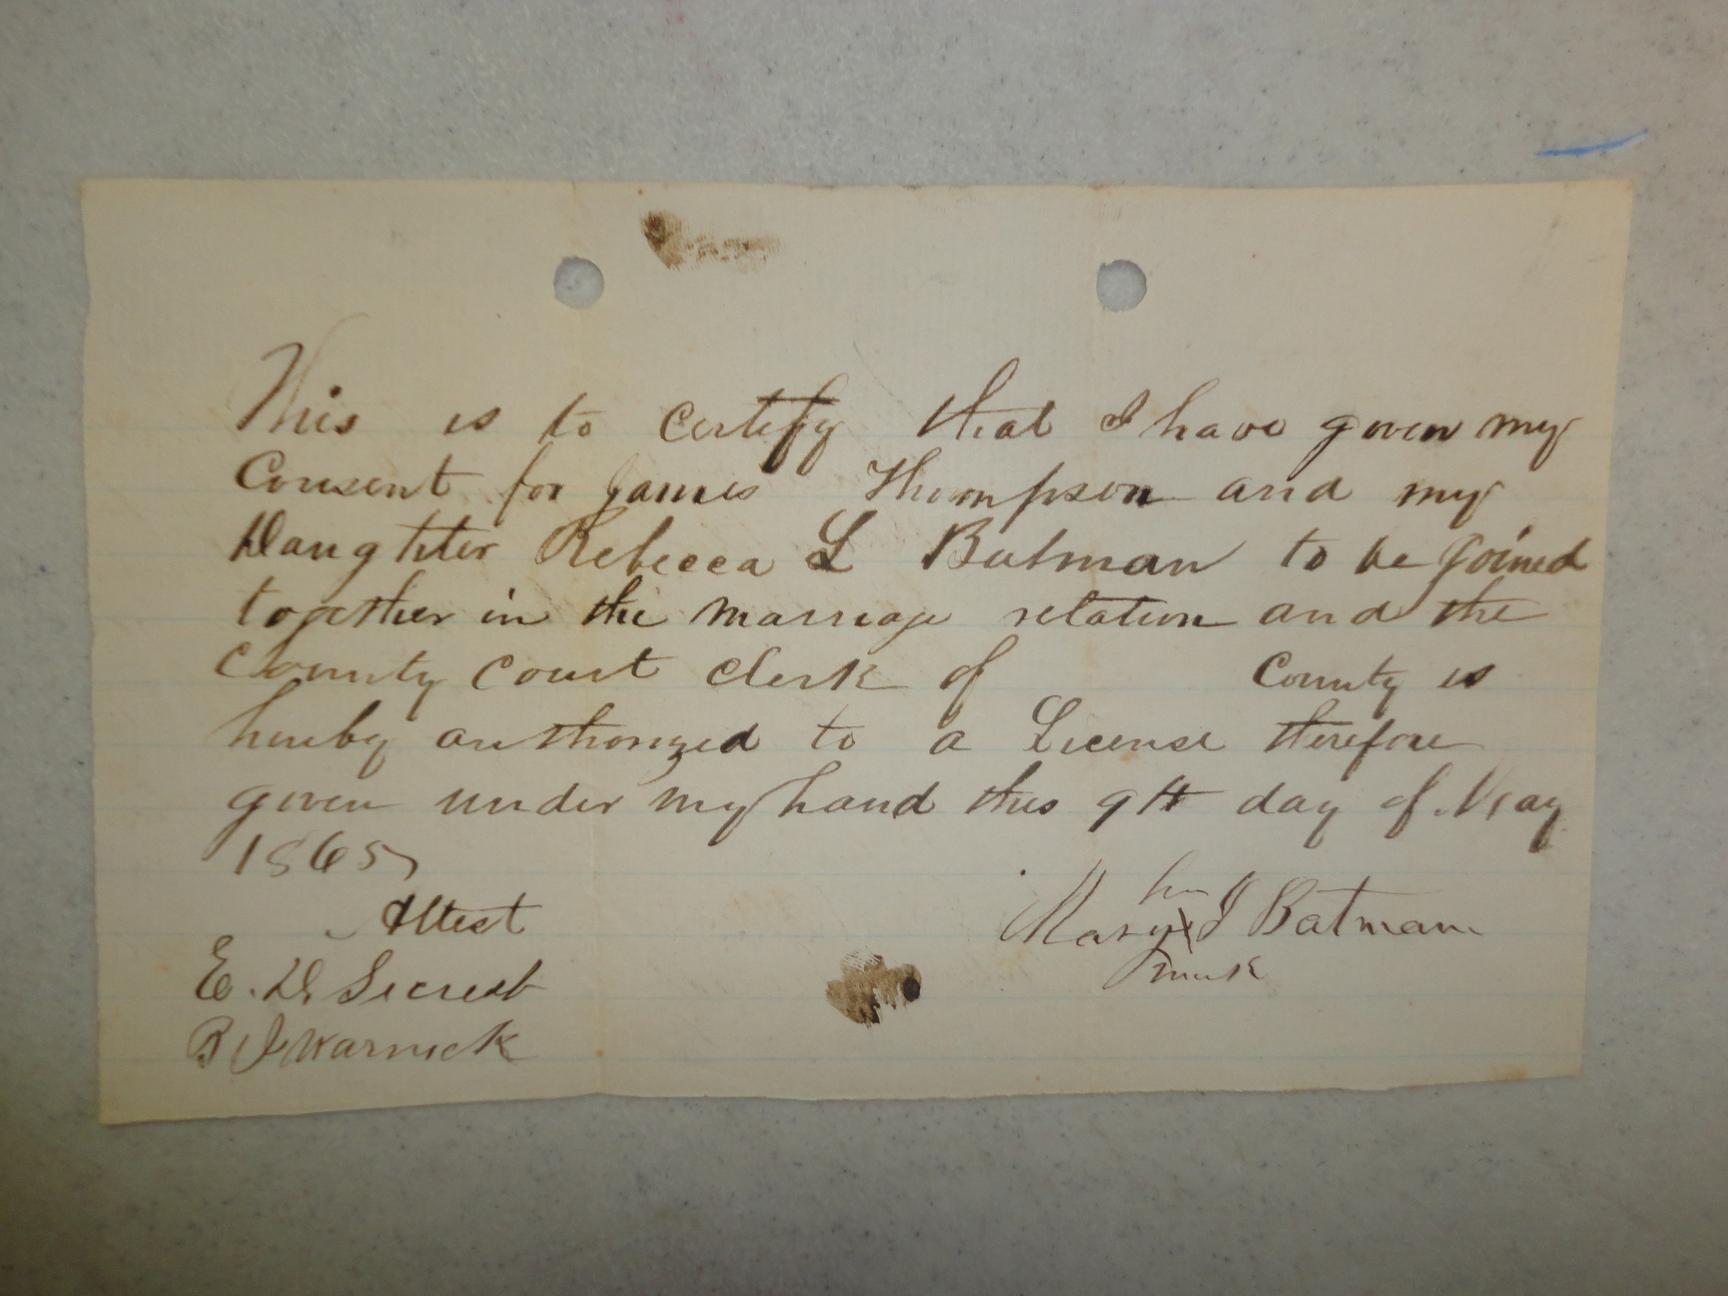 This is to certify that I have given my
Consent for James Thompson and my
Daughter Rebecca L Batman to be joined
together in the marriage relation and the
County Court Clerk of County is
hereby authorized to a License therefore
given under my hand this 9th day of May
1865,
Attest
her
Mary X J Batman
mark
E. D. Secrest
B J Warnick